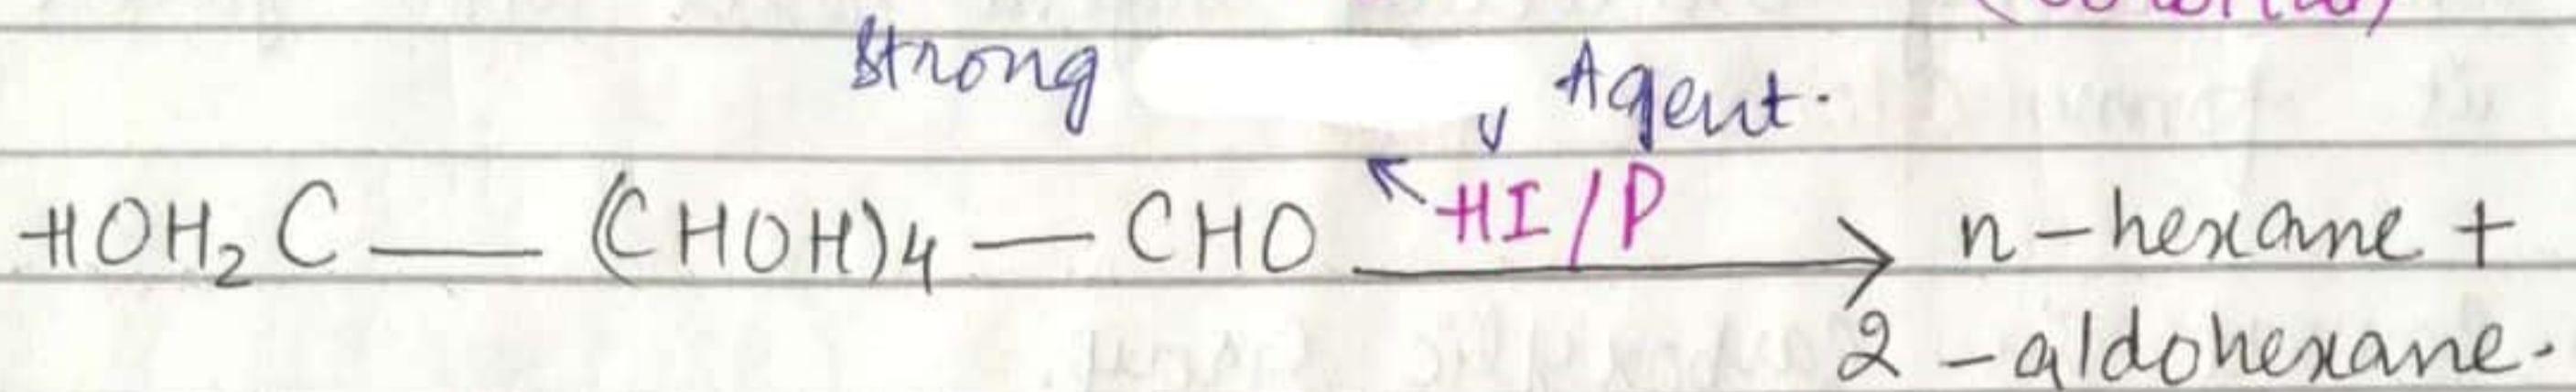 Strong Agent.
HOH₂C — (CHOH)4 — CHO HI/P → n-hexane +
2-aldohexane.